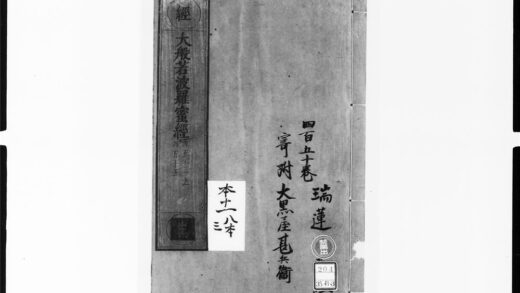 經
大般若波羅蜜經
四百五十卷
寄附大黒屋甚兵衛
瑞蓮
本十一
八本
三